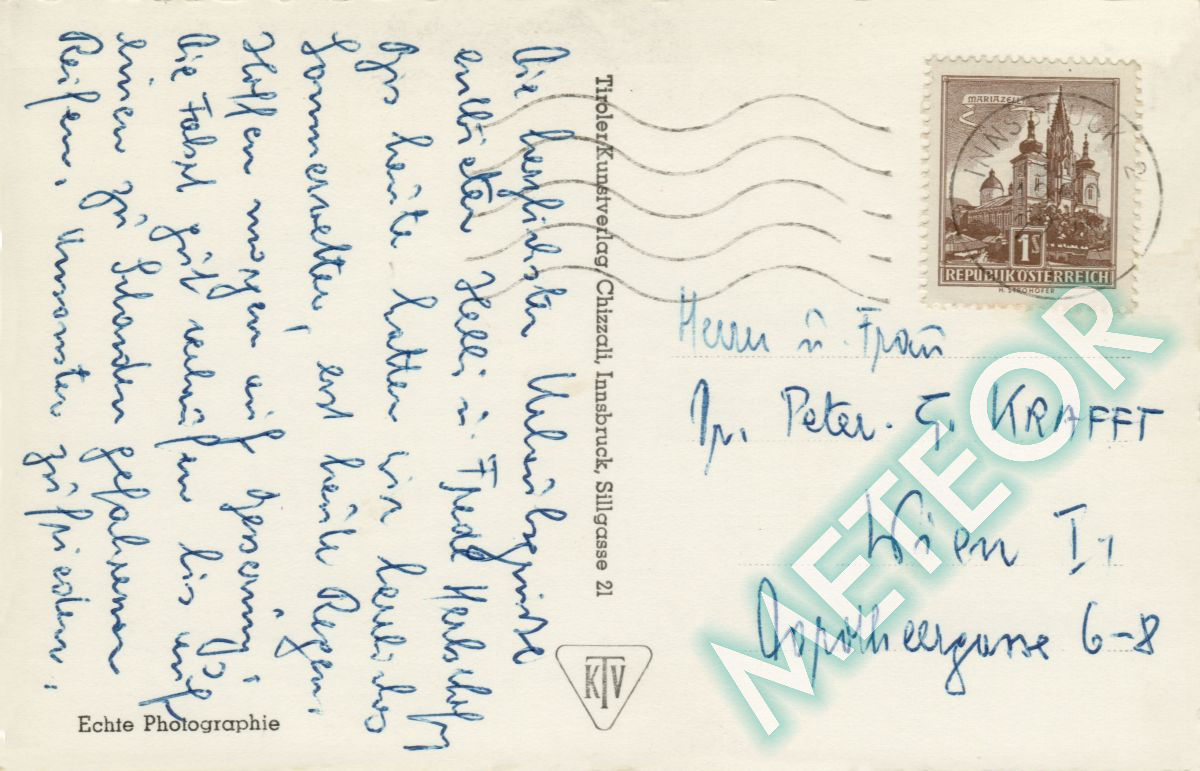 Die herzlichsten Urlaubsgrüße
entbieten Helli u. Fredl
Bis heute hatten wir herrliches
Sommerwetter, erst heute Regen.
Hoffen morgen auf Besserung.
Die Fahrt gut verlaufen bis auf
einen zu Schanden gefahrenen
Reifen. Ansonsten zufrieden.
Echte Photographie
Tiroler Kunstverlag Chizzali, Innsbruck, Sillgasse 21
KTV
MARIAZELL
INNSBRUCK 2
1s
REPUBLIK ÖSTERREICH
H. STROHOFER
Herrn u. Frau
Dr. Peter. G. KRAFFT
Wien I,
6-8
METEOR